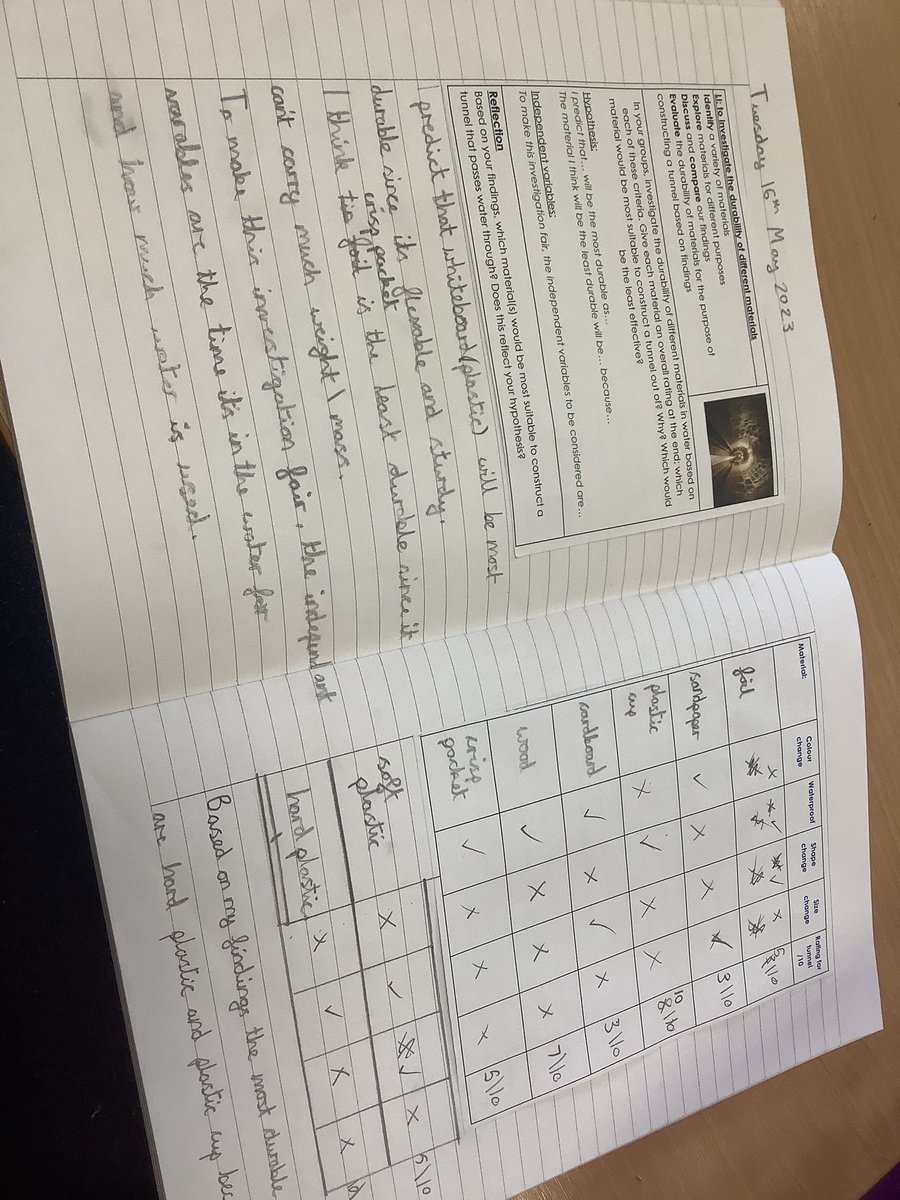 Tuesday 16th May 2023
LI: to investigate the durability of different materials
Identify a variety of materials
Explore materials for different purposes
Discuss and compare our findings
Evaluate the durability of materials for the purpose of
constructing a tunnel based on findings
In your groups, investigate the durability of different materials in water based on
each of these criteria. Give each material an overall rating at the end: which
material would be most suitable to construct a tunnel out of? Why? Which would
be the least effective?
Hypothesis:
I predict that... will be the most durable as...
The material I think will be the least durable will be... because...
Independent variables:
To make this investigation fair, the independent variables to be considered are...
Reflection
Based on your findings, which material(s) would be most suitable to construct a
tunnel that passes water through? Does this reflect your hypothesis?
predict that whiteboard(plastic) will be most
durable since it's flexable and sturdy.
crisp packet
I think tin foil is the least durable since it
can't carry much weight \ mass.
To make this investigation fair, the independant
varables are the time it's in the water for
and how much water is used.
Material: Colour change Waterproof Shape change Size change Rating for tunnel /10
foil x ✓ ✓ x \10
sandpaper ✓ x x ✓ 3\10
plastic cup x ✓ x x 10 8\10
cardboard ✓ x ✓ x 3\10
wood ✓ x x x 7\10
crisp packet ✓ x x x 5\10
soft plastic x ✓ ✓ x \10
hard plastic x ✓ x x
Based on my findings the most durable
are hard plastic and plastic cup bec